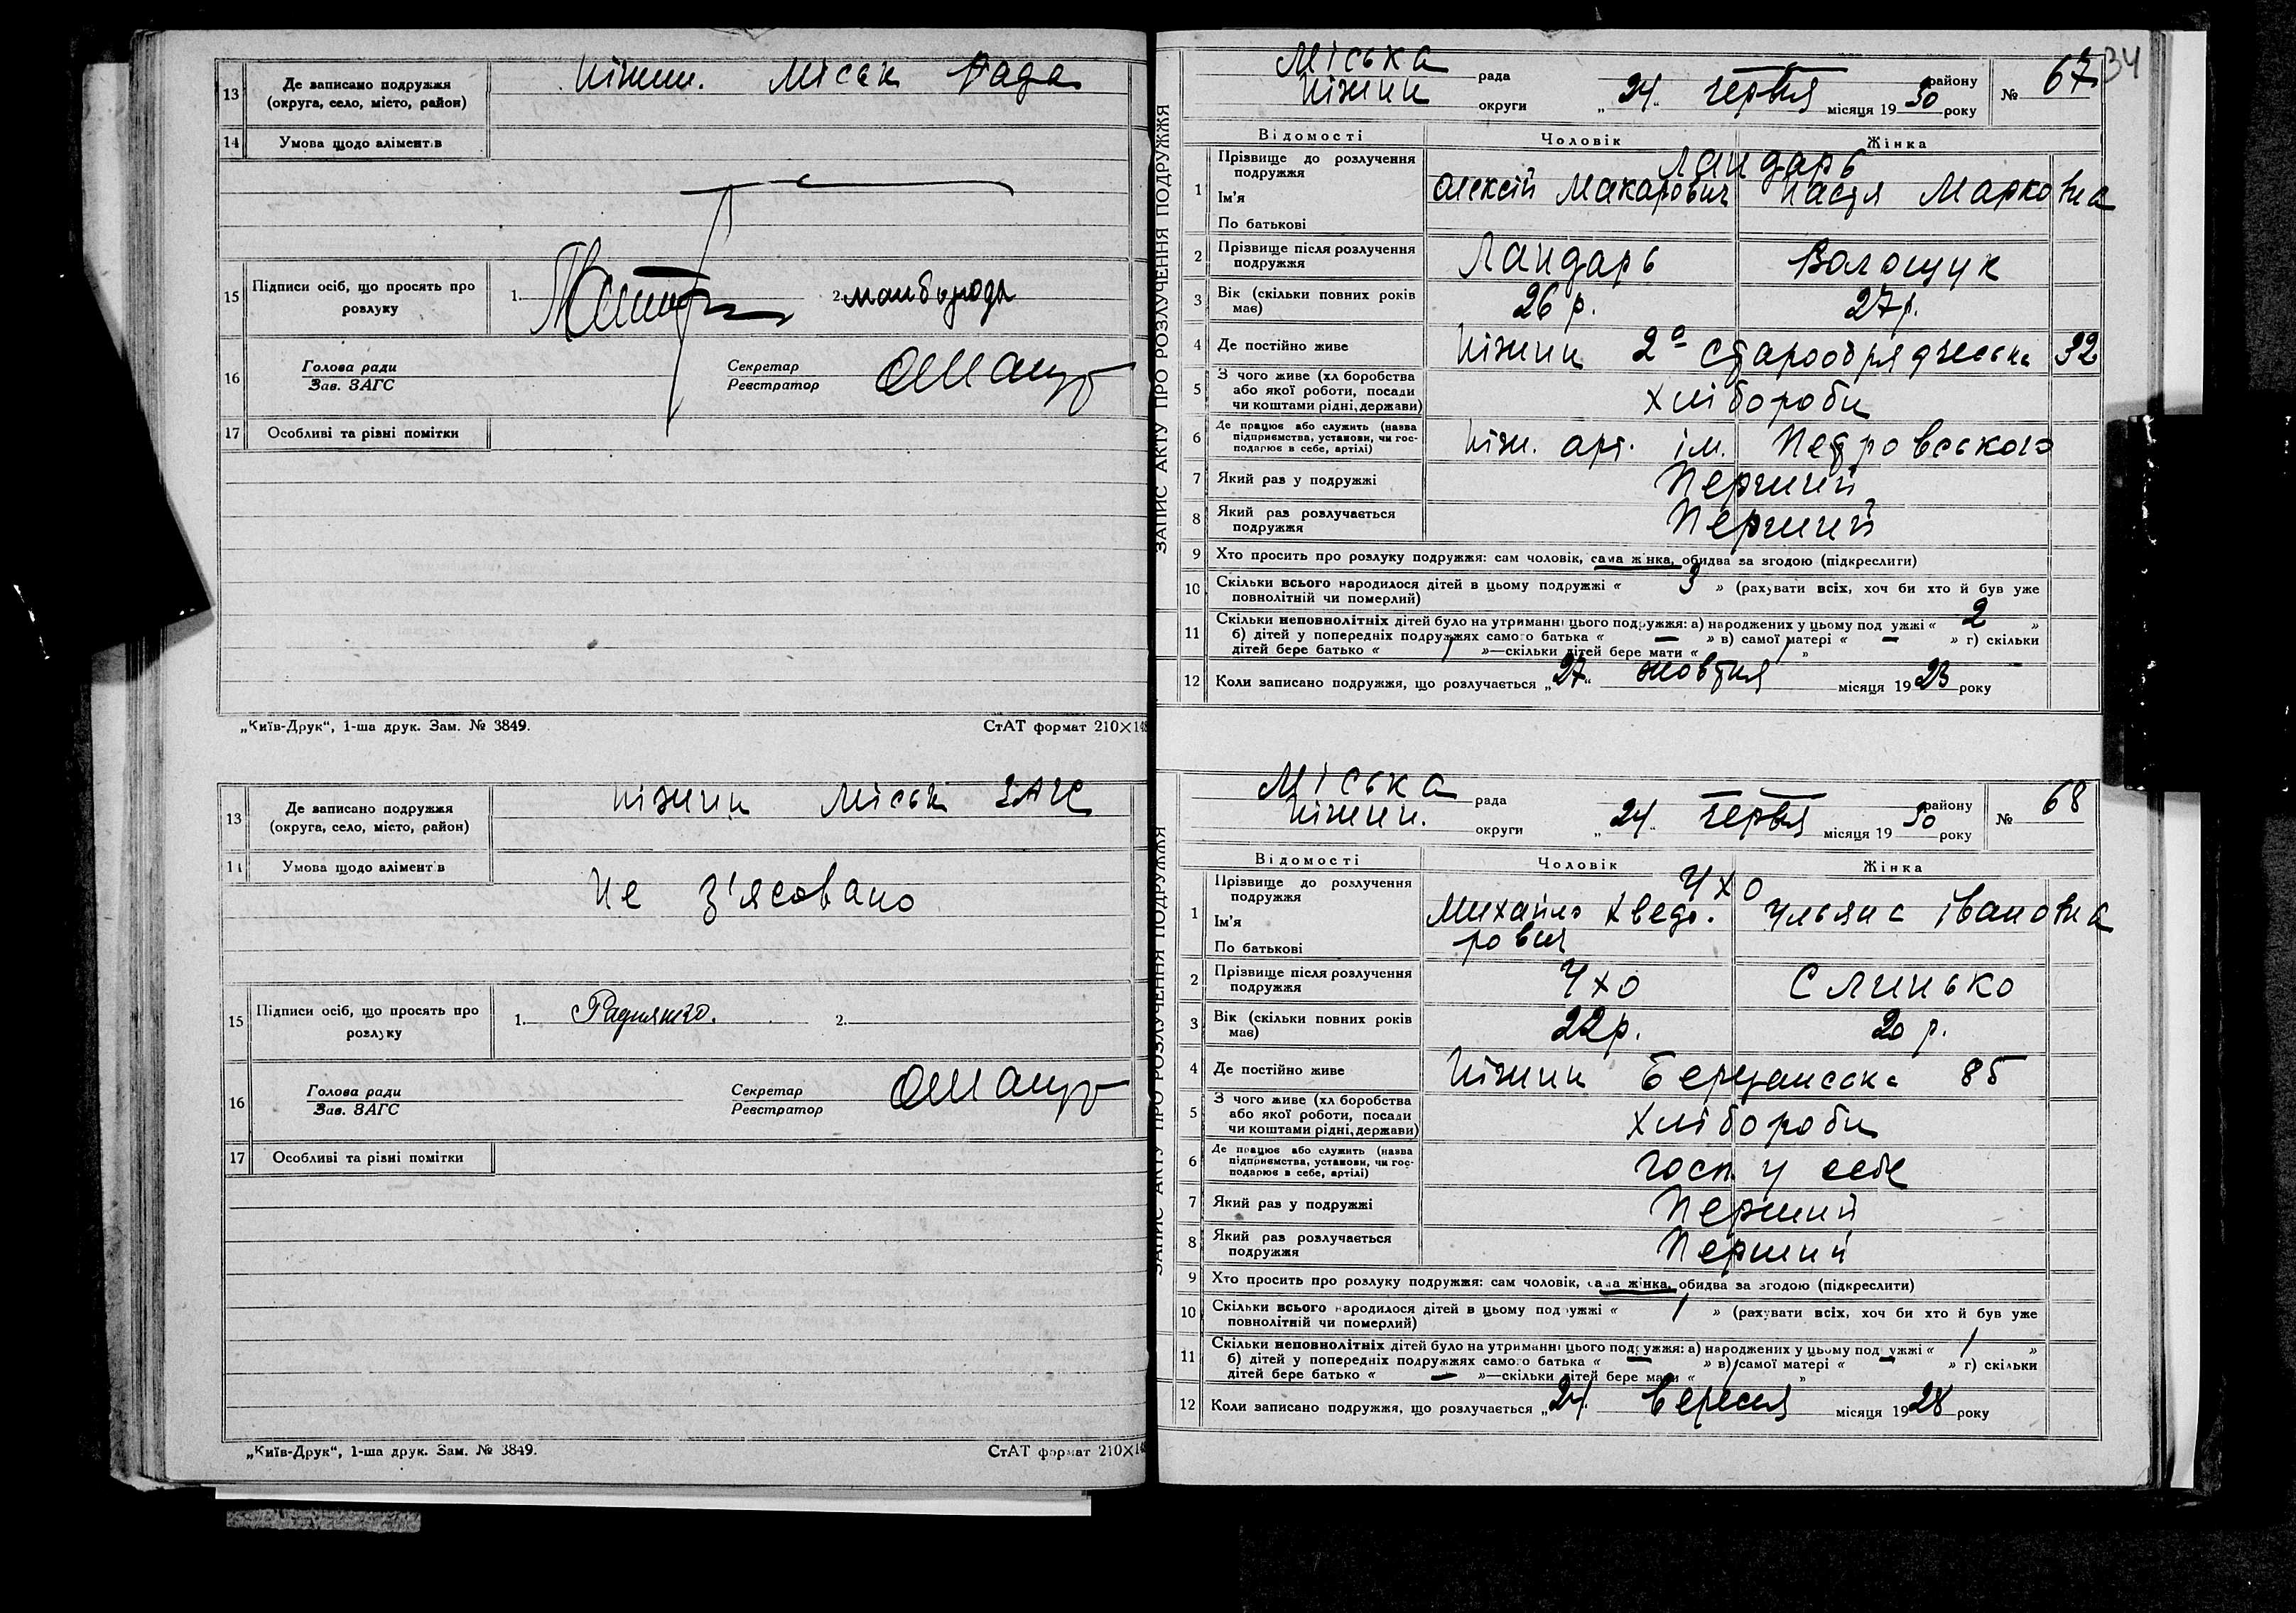 13 Де записано подружжя
(округа, село, місто, район)
Ніжин. Міськ Рада
14 Умова щодо аліментів
15 Підписи осіб, що просять про
розлуку
1. 2. Майборода
16 Голова ради
Зав. ЗАГС
Секретар
Реєстратор
17 Особливі та різні помітки
„Київ-Друк“, 1-ша друк. Зам. № 3849. СтАТ формат 210×148
13 Де записано подружжя
(округа, село, місто, район)
Ніжин Міськ ЗАГС
14 Умова щодо аліментів
Не з'ясовано
15 Підписи осіб, що просять про
розлуку
1. 2.
16 Голова ради
Зав. ЗАГС
Секретар
Реєстратор
17 Особливі та різні помітки
„Київ-Друк“, 1-ша друк. Зам. № 3849. СтАТ формат 210×148
34
ЗАПИС АКТУ ПРО РОЗЛУЧЕННЯ ПОДРУЖЖЯ
Міська рада району № 67
Ніжин округи „24“ червня місяця 1930 року
Відомості Чоловік Жінка
1 Прізвище до розлучення
подружжя
Ландарь
Ім'я
Олексій Макарович Настя Марковна
По батькові
2 Прізвище після розлучення
подружжя
Ландарь Волощук
3 Вік (скільки повних років
має)
26 р. 27 р.
4 Де постійно живе Ніжин 2а Старообрядческа 32
5 З чого живе (хліборобства
або якої роботи, посади
чи коштами рідні, держави)
Хлібороби
6 Де працює або служить (назва
підприємства, установи, чи гос-
подарює в себе, артілі)
Ніж. арт. ім. Петровського
7 Який раз у подружжі Перший
8 Який раз розлучається
подружжя
Перший
9 Хто просить про розлуку подружжя: сам чоловік, сама жінка, обидва за згодою (підкреслити)
10 Скільки всього народилося дітей в цьому подружжі « 3 » (рахувати всіх, хоч би хто й був уже
повнолітній чи померлий)
11 Скільки неповнолітніх дітей було на утриманні цього подружжя: а) народжених у цьому подружжі « 2 »
б) дітей у попередніх подружжях самого батька « — » в) самої матері « — » г) скільки
дітей бере батько « 1 »—скільки дітей бере мати « 1 »
12 Коли записано подружжя, що розлучається „27“ жовтня місяця 1923 року
ЗАПИС АКТУ ПРО РОЗЛУЧЕННЯ ПОДРУЖЖЯ
Міська рада району № 68
Ніжин. округи „24“ червня місяця 1930 року
Відомості Чоловік Жінка
1 Прізвище до розлучення
подружжя
Ухо
Ім'я
Михайло Хведо- Ульяна Івановна
По батькові
рович
2 Прізвище після розлучення
подружжя
Ухо Слинько
3 Вік (скільки повних років
має)
22 р. 20 р.
4 Де постійно живе Ніжин 85
5 З чого живе (хліборобства
або якої роботи, посади
чи коштами рідні, держави)
Хлібороби
6 Де працює або служить (назва
підприємства, установи, чи гос-
подарює в себе, артілі)
Госп. у себе
7 Який раз у подружжі Перший
8 Який раз розлучається
подружжя
Перший
9 Хто просить про розлуку подружжя: сам чоловік, сама жінка, обидва за згодою (підкреслити)
10 Скільки всього народилося дітей в цьому подружжі « 1 » (рахувати всіх, хоч би хто й був уже
повнолітній чи померлий)
11 Скільки неповнолітніх дітей було на утриманні цього подружжя: а) народжених у цьому подружжі « 1 »
б) дітей у попередніх подружжях самого батька « — » в) самої матері « — » г) скільки
дітей бере батько « — »—скільки дітей бере мати « 1 »
12 Коли записано подружжя, що розлучається „24“ вересня місяця 1928 року